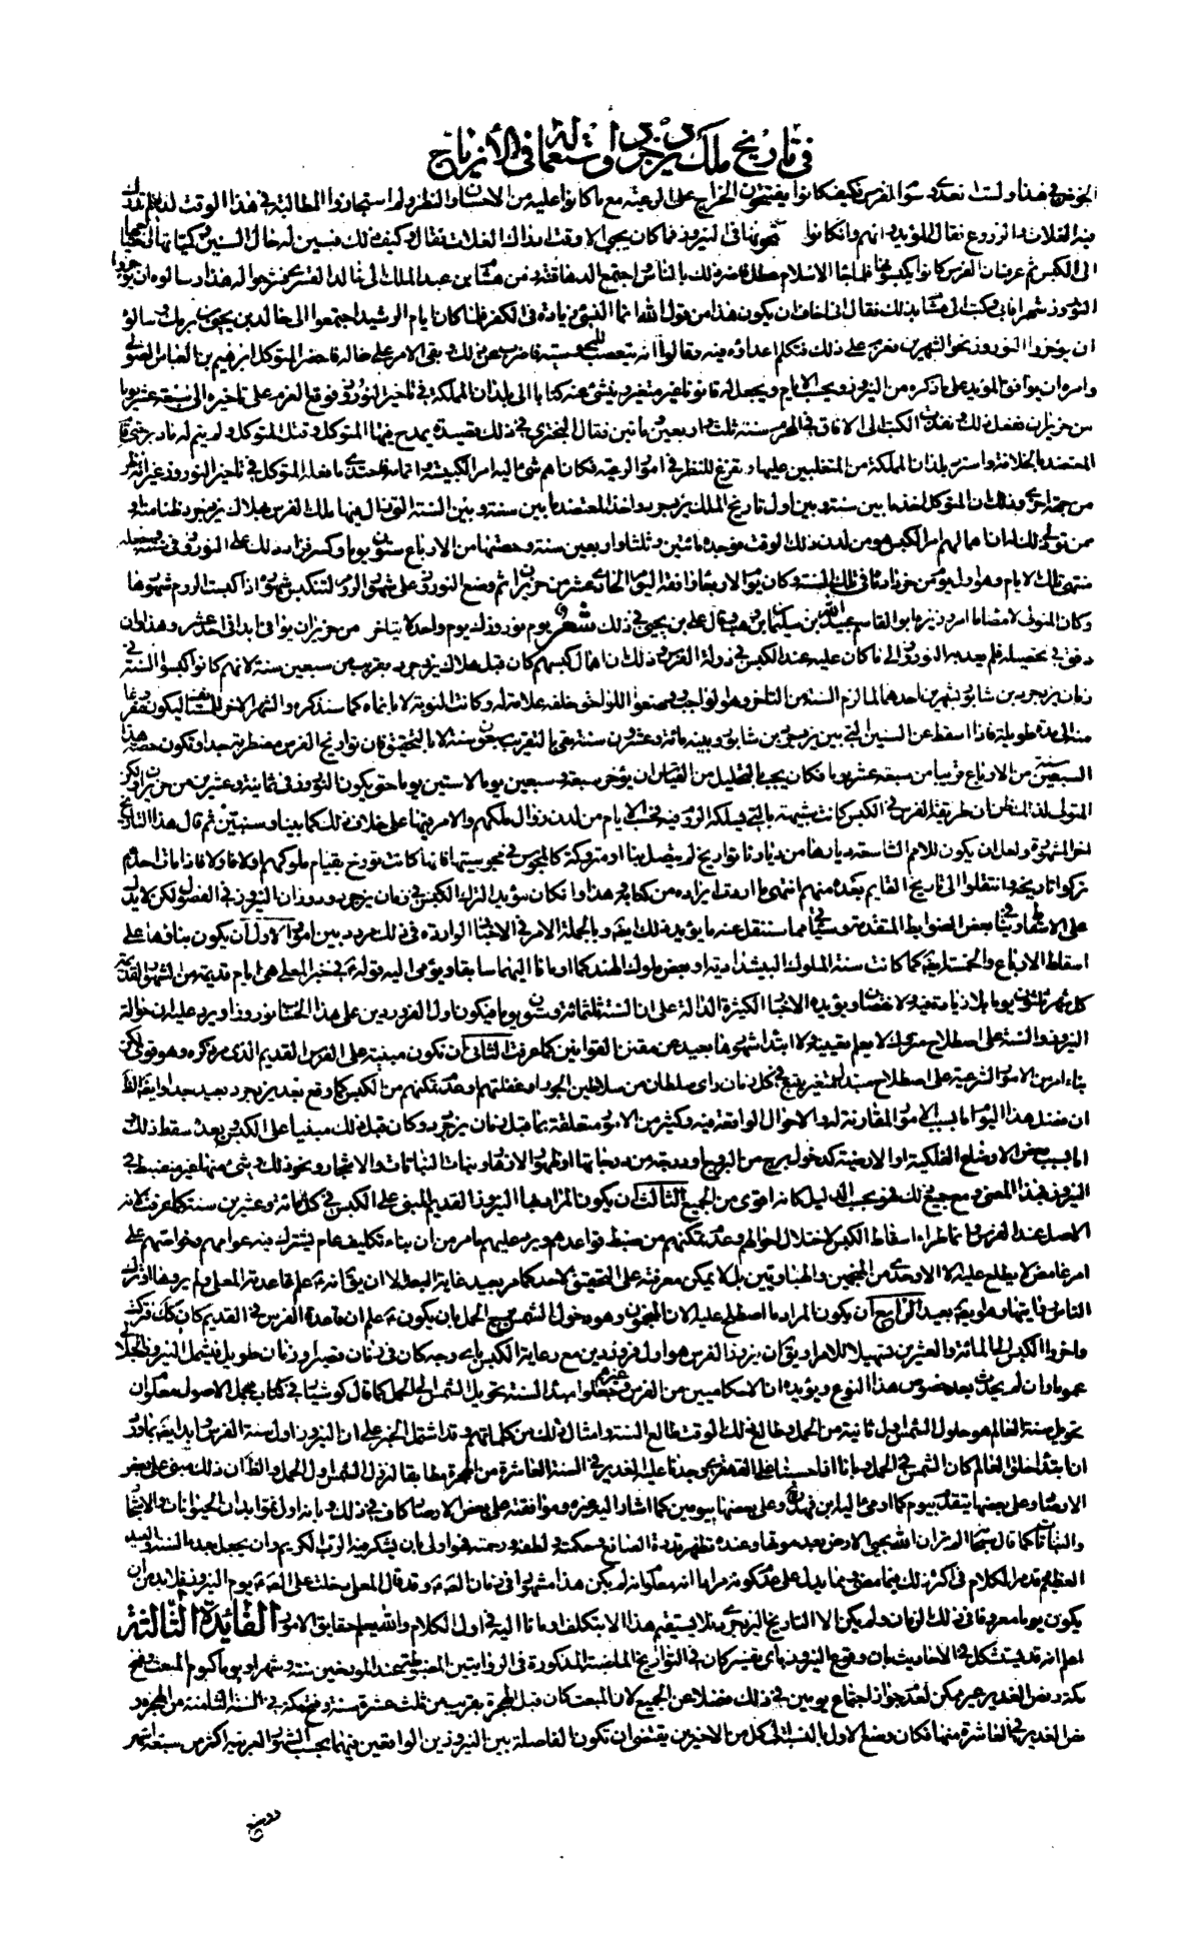 في تاريخ ملك يزدجرد واستعماله في الأزياج
الخوض في هذا ولست اتعدى رسوم الفرس فكيف كانوا يفتتحون الخراج على الرعية مع ما كانوا عليه من الاحسان والنظر ولم استجازوا المطالبة في هذا الوقت الذي لم تدرك
فيه الغلات والزروع فقال المؤبد وانهم وان كانوا يفتتحونها في النيروز فما كان يجبى الا وقت ادراك الغلات فقال وكيف ذلك فبين له حال السنين وكمياتها
الى الكبس ثم عرفه ان الفرس كانوا يكبسونها فلما جاء الاسلام عطل فاضر ذلك بالناس اجتمع الدهاقنة زمن هشام بن عبد الملك الى خالد القسري فشرحوا له هذا وسالوه ان يؤخر
النوروز شهرا فابى وكتب الى هشام بذلك فقال اني اخاف ان يكون هذا من قول الله انما النسيء زيادة في الكفر فلما كان ايام الرشيد اجتمعوا الى خالد بن يحيى بن برمك وسالوه
ان يؤخر النوروز نحو الشهرين فعزم على ذلك فتكلم اعداؤه فيه وقالوا انه يتعصب للمجوسية فاضرب عن ذلك وبقي الامر على حاله فاحضر المتوكل ابرهيم بن العباس الصولي
وامره ان يوافق المؤبد على ما ذكره من النيروز ويحسب الايام ويجعل له قانونا غير متغير وينشئ عنه كتابا الى بلدان المملكة في تاخير النوروز فوقع العزم على تاخيره الى سبعة عشر يوما
من حزيران ففعل ذلك ونفذت الكتب الى الافاق في المحرم سنة ثلث واربعين ومائتين فقال البحتري في ذلك قصيدة يمدح فيها المتوكل وقتل المتوكل ولم يتم له ما دبر حتى قام
المعتضد بالخلافة واسترد بلدان المملكة من المتغلبين عليها وتفرغ للنظر في امور الرعية فكان اهم شيء اليه امر الكبيسة واتمامه فاحتذى ما فعله المتوكل في تاخير النوروز غير انه نظر
من جهة اخرى وذلك ان المتوكل اخذ ما بين سنته وبين اول تاريخ الملك يزدجرد واخذ المعتضد ما بين سنته وبين السنة التي زال فيها ملك الفرس بهلاك يزدجرد ظنا منه او
ممن تولى ذلك له ان اهمالهم امر الكبس هو من لدن ذلك الوقت فوجده مائتين وثلثا واربعين سنة وحصتها من الارباع ستون يوما وكسر فزاد ذلك على النوروز في سنته وجعله
منتهى تلك الايام وهو اول يوم من خردادماه في تلك السنة وكان يوم الاربعا ووافقه اليوم الحادي عشر من حزيران ثم وضع النوروز على شهور الروم لتنكبس شهوره اذا كبست الروم شهورها
وكان المتولى لامضاء ما امر وزيره ابو القاسم عبيد الله بن سليمان بن وهب وقال علي بن يحيى في ذلك شعر يوم نوروزك يوم واحد لا يتاخر من حزيران يوافي ابدا في احد عشر وهذا وان
دقق في تحصيله فلم يعد به النوروز الى ما كان عليه عند الكبس في دولة الفرس وذلك ان اهمال كبسهم كان قبل هلاك يزدجرد بقريب من سبعين سنة لانهم كانوا كبسوا السنة في
زمان يزدجرد بن شابور بشهرين احدهما لما لزم السنة من التاخر وهو الواجب ووضعوا اللواحق خلفه علامة له وكانت النوبة لابانماه كما سنذكره والشهر الاخر للمستانف ليكون مفروغا
منه الى مدة طويلة فاذا اسقط عن السنين التي بين يزدجرد بن شابور وبينه مائة وعشرون سنة بقي بالتقريب سبعون سنة لا بالتحقيق فان تواريخ الفرس مضطربة جدا وتكون حصة هذه
السبعين سنة من الارباع قريبا من سبعة عشر يوما فكان يجب بالتحليل من القياس ان يؤخر سبعة وسبعين يوما لا ستين يوما حتى يكون النوروز في ثمانية وعشرين من حزيران ولكن
المتولي لذلك ظن ان طريقة الفرس في الكبس كانت شبيهة بالتي يسلكه الروم فيه فحسب الايام من لدن زوال ملكهم والامر فيها على خلاف ذلك كما بينا وسنبين ثم قال هذا التاريخ
اخر المشهورة ولعل ان يكون للامم الشاسعة ديارها من ديارنا تواريخ لم يتصل بنا او متروكة كالمجوس في مجوسيتها فانها كانت تؤرخ بقيام ملوكهم اولا فاولا فاذا مات احدهم
تركوا تاريخه وانتقلوا الى تاريخ القايم بعده منهم انتهى ما اردت ايراده من كلامه وهذا وان كان مؤيدا لترك الكبس في زمان يزدجرد ودوران النيروز في الفصول لكن لا يدل
اسقاط الارباع والخمسة ايضا كما كانت سنة الملوك البيشدادية او بعض ملوك الهند كما اومانا اليهما سابقا ويومي اليه قوله ع في خبر المعلى هي ايام قديمة من الشهور القديمة
كل شهر ثلثون يوما بلا زيادة ونقصان ويؤيده الاخبار الكثيرة الدالة على ان السنة ثلثمائة وستون يوما فيكون اول الفروردين على هذا الحساب نوروزا ويرد عليه ان حوالة
النيروز والسنة على اصطلاح متروك لا يعلم يقينية ولا ابتداء شهورها بعيد عن مقنن القوانين كما عرفت الثاني ان تكون مبنية على الفرس القديم الذي مر ذكره وهو قوي لكن
بناء امر من الامور الشرعية على اصطلاح متبدل متغير يقع في كل زمان راى سلطان من سلاطين الجور او غفلتهم او عدم تمكنهم من الكبس كما وقع بعد يزدجرد بعيد جدا وايضا الظاهر
ان فضل هذا اليوم اما بسبب الامور المقارنة له والاحوال الواقعة فيه وكثير من الامور متعلقة بما قبل زمان يزدجرد وكان قبل ذلك مبنيا على الكبس وبعده سقط ذلك
اما بسبب بعض الاوضاع الفلكية او الارضية كدخول برج من البروج او درجة من درجاتها او ظهور الازهار ونبات النباتات والاشجار ونحو ذلك وشيء منها غير منضبط في
النيروز بهذا المعنى ومع جميع ذلك فهو بحسب الدليل كانه اقوى من الجميع الثالث ان يكون المراد بها النيروز القديم المبني على الكبس في كل مائة وعشرين سنة كما عرفت لانه
الاصل عند الفرس وانما طراء اسقاط الكبس لاختلال احوالهم وعدم تمكنهم من ضبط قواعدهم ويرد عليه ما مر من ان بناء تكليف عام يشترك فيه عوامهم وخواصهم على
امر غامض لا يطلع عليه الا الاوحدى من المنجمين والهيئاويين بل لا يمكن معرفته على التحقيق لاحد كما مر بعيد غاية البعد الا ان يق انه ع علم قاعدته المعلى ولم يروها او ترك
الناس روايتها وهو ايضا بعيد الرابع ان يكون المراد ما اصطلح عليه الان المنجمون وهو دخول الشمس برج الحمل بان يكون ع علم ان قاعدة الفرس في القديم كان كذلك فتركت
واخروا الكبس الى المائة والعشرين تسهيلا للامر او يق ان نيروز الفرس هو اول فروردين مع رعاية الكبس باي وجه كان في زمان قصير او زمان طويل فيشمل النيروز الجلالي
عموما وان لم يحدث بعد خصوص هذا النوع ويؤيده ان الاحكاميين من الفرس وغيره جعلوا مبدا السنة تحويل الشمس الى الحمل كما قال كوشيار في كتاب مجمل الاصول معلوم ان
تحويل سنة العالم هو حلول الشمس اول ثانية من الحمل وطالع ذلك الوقت طالع السنة وامثال ذلك من كلماتهم وقد اشتمل الخبر على ان النيروز اول سنة الفرس وايد ايضا بما ورد
ان ابتداء خلق العالم كان الشمس في الحمل وبانا اذا حسبنا على القهقرى وجدنا عليه الغدير في السنة العاشرة من الهجرة مطابقا لنزول الشمس اول الحمل والظ ان ذلك مبني على بعض
الارصاد وعلى بعضها يتقدم بيوم كما اومى اليه ابن فهد ره وعلى بعضها بيومين كما اشار اليه غيره وموافقته على بعض الارصاد كاف في ذلك وبانه اول نمو ابدان الحيوانات والاشجار
والنباتات كما قال سبحانه اعلموا ان الله يحيي الارض بعد موتها وعنده تظهر قدرة الصانع وحكمته ولطفه ورحمته فهو اولى بان يشكر فيه الرب الكريم وان يجعل مبدء السنة والعيد
العظيم وقد مر الكلام في اكثر ذلك فيما مضى بما يدل على عدم كونه مرادا انه معلوم انه لم يكن هذا مشهورا في زمان الص ع وقد قال المعلى دخلت على الص ع يوم النيروز فلا بد من ان
يكون يوما معروفا في ذلك الزمان ولم يكن الا التاريخ اليزدجردي فلا يستقيم هذا الا بتكلف اومانا اليه في اول الكلام والله يعلم حقايق الامور الفائدة الثالثة
اعلم انه قد يستشكل في الاحاديث بان وقوع النيروز باي تفسير كان في التواريخ المختلفة المذكورة في الروايتين المضبوطة عند المورخين سنة وشهرا ويوما كيوم المبعث وفتح
مكة ونص الغدير غير ممكن لعدم جواز اجتماع يومين في ذلك فضلا عن الجميع لان المبعث كان قبل الهجرة بقريب من ثلث عشرة سنة وفتح مكة في السنة الثامنة من الهجرة و
نص الغدير في العاشرة منها فكان وضع الاول بالنسبة الى كل من الاخيرين يقتضي ان تكون الفاصلة بين النيروزين الواقعين فيهما بحسب الشهور العربية اكثر من سبعة اشهر